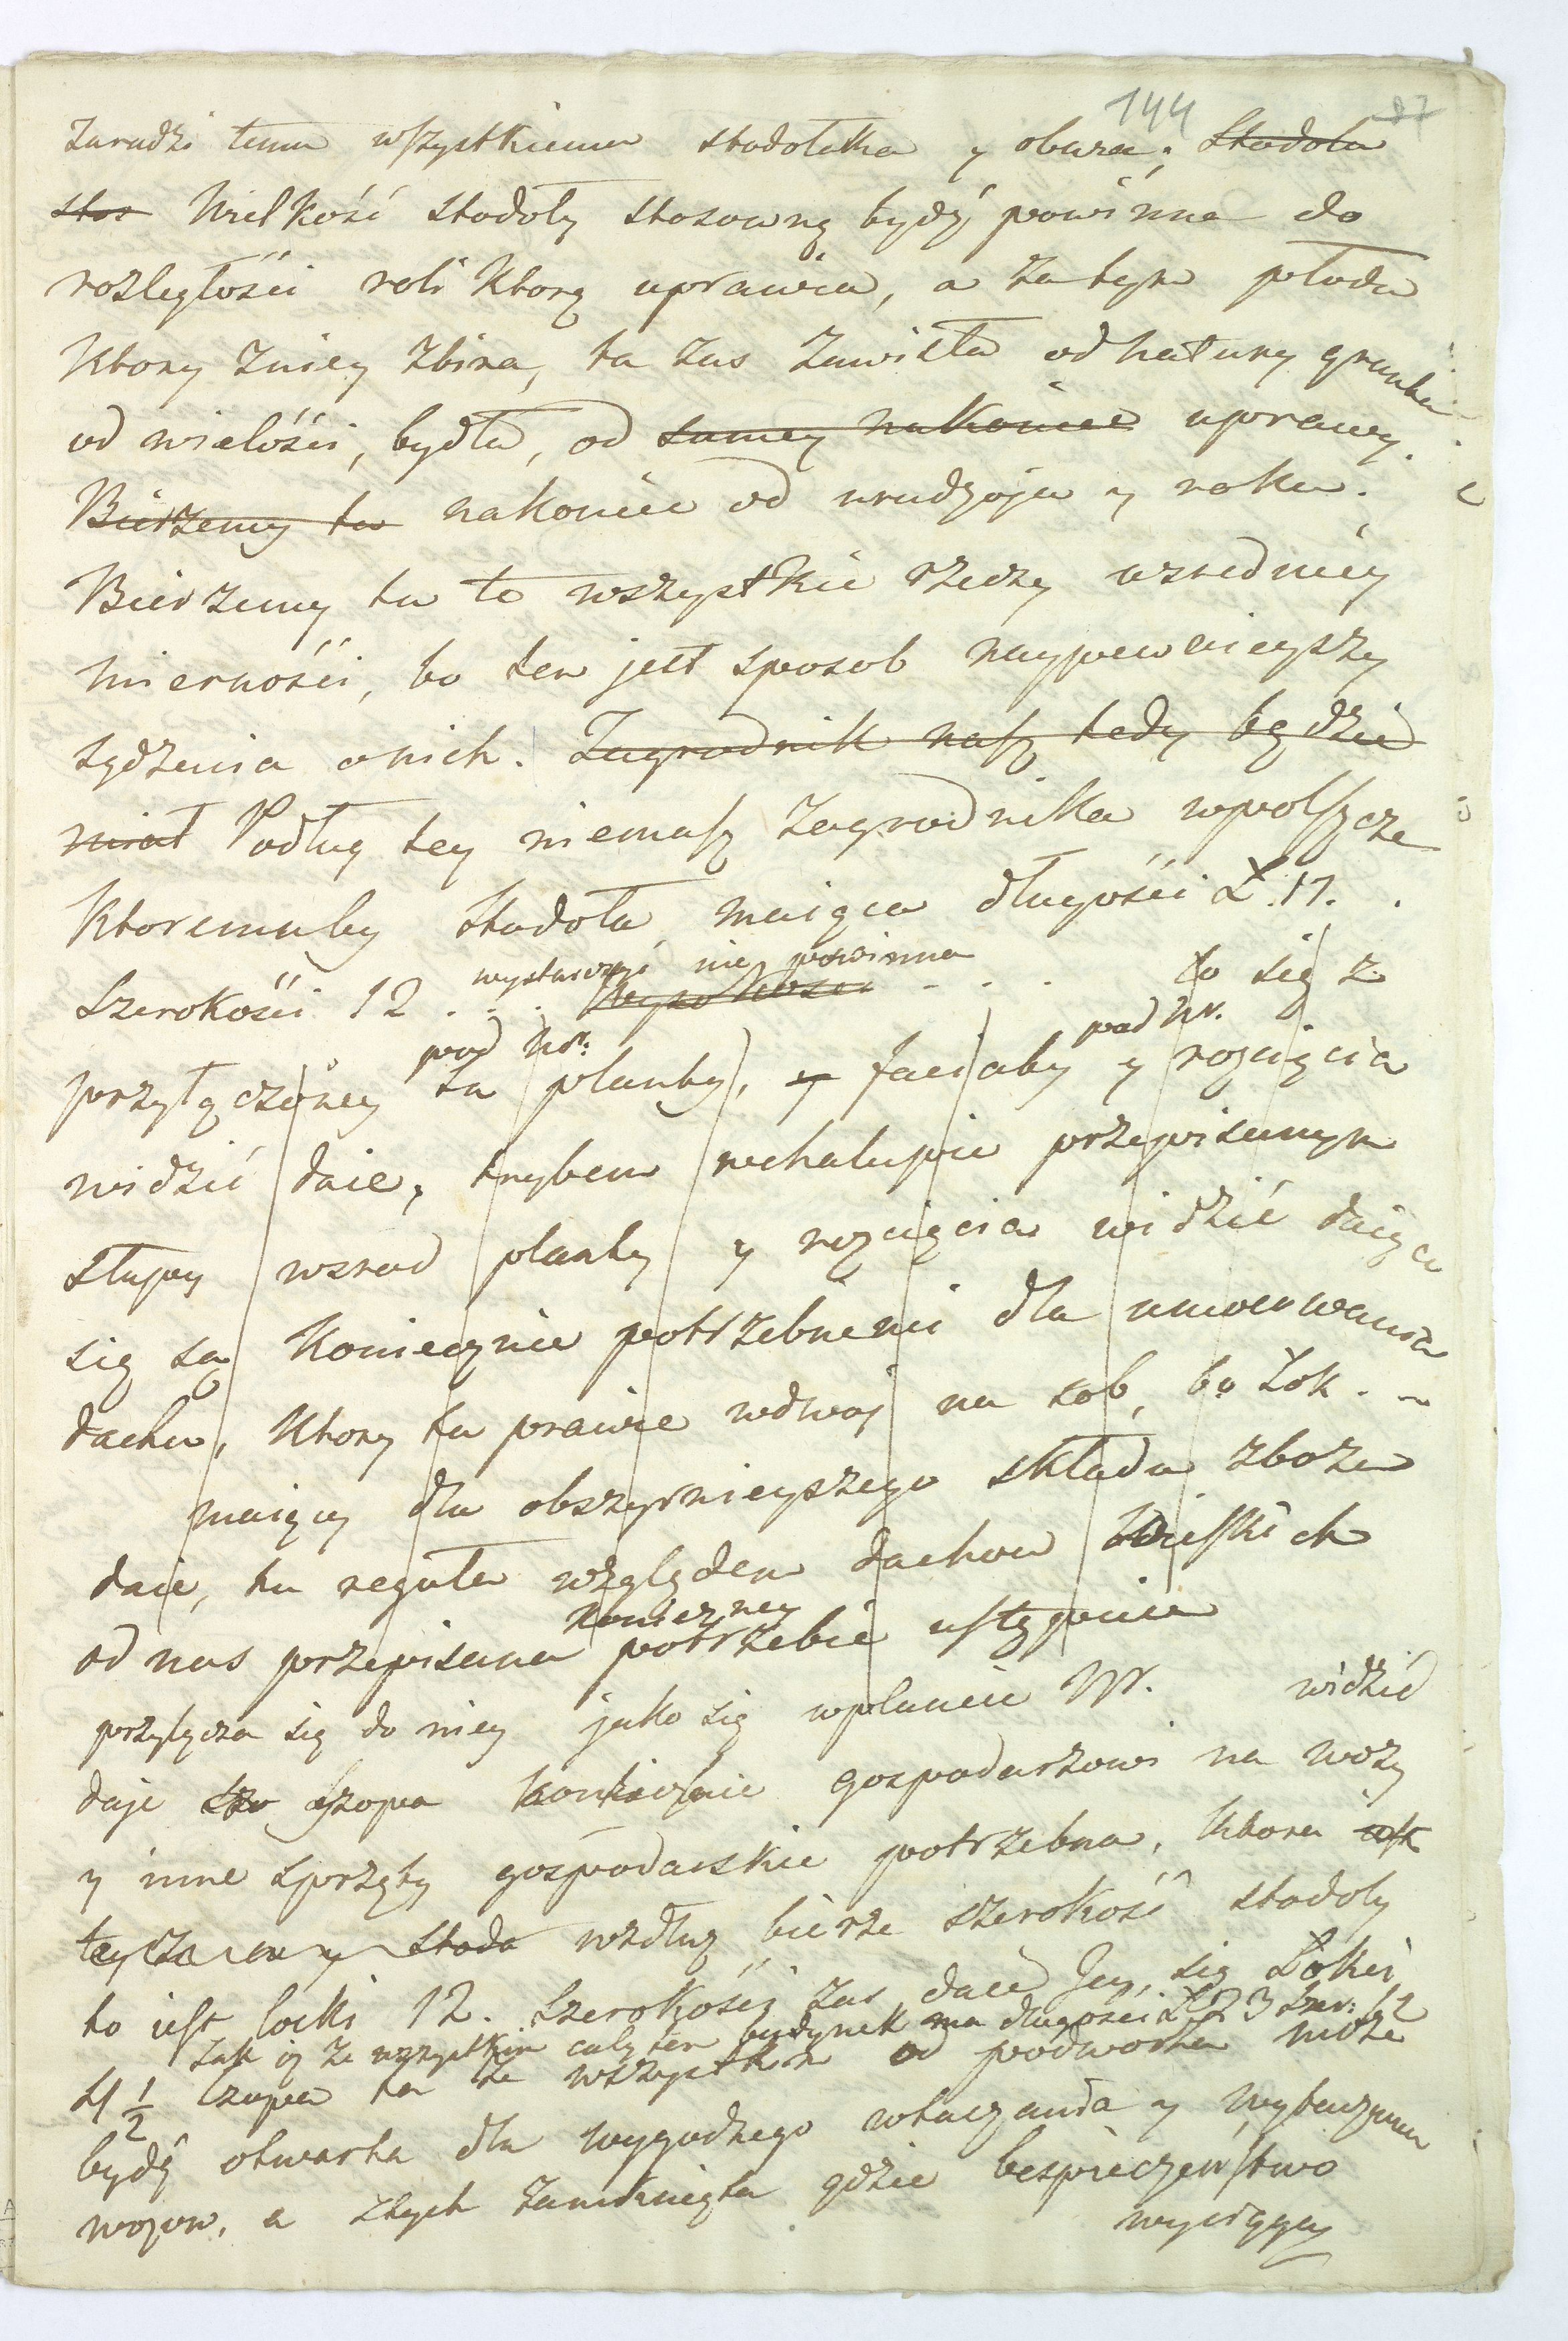 144 87
Zaradzi temu wszystkiemu stodołka y obora; Stodoła
stos Wielkość stodoły stosowną bydź powinna do
rozległości roli ktorą uprawia, a zatym płodu
ktory zniey zbira, ta zas zawisła od natury gruntu
od wielości, bydła, od samey nakoniec uprawy.
Bierzemy tu nakoniec od urodzaju y roku.
Bierzemy tu te wszystkie rzeczy wsredniey
mierności, bo ten jest sposob naypewnieyszy
sądzenia onich. Zagrodnik nasz tedy będzie
miał Podług tey niemasz zagrodnika wpolszcze
ktoremuby stodoła maiąca długości Ł. 17. .
szerokości 12 . . . wysokosci . . . to się z
wystarczyć nie powinna
przyłączoney tu planty, y faciaby y rozcięcia
pod Nr: pod Nr.
widzić daie, trybem wchałupie przepisanym
słupy wsrod planty y rozcięcia widzić daiące
się są koniecznie potrzebnemi dla umocowania
dachu, ktory tu prawie wdwoj na sob, bo Łok . ~
maiący dla obszernieyszego składu zboża
daie, tu reguła względem dachow wieskich
od nas przepisana potrzebie ustąpiła
konieczney
przyłącza się do niey jako się wplancie Nr. widzić
daje szo szopa koniecznie gospodarzowi na wozy
y inne sprzęty gospodarskie potrzebna, ktora
stodo wzdłuż bierze szerokość stodoły
to iest łocki 12. szerokości zas daie Jey, się Łokci
Tak iż ze wszystkim cały ten budynek ma długości Ł 23 szer: 12
4 1/2 szopa ta ze wszystkim od podworza może
bydź otwarta dla wygodnego wtaczania y wytaczania
wozow, a ztych zamknięta gdzie bespieczeństwo
wyciągay